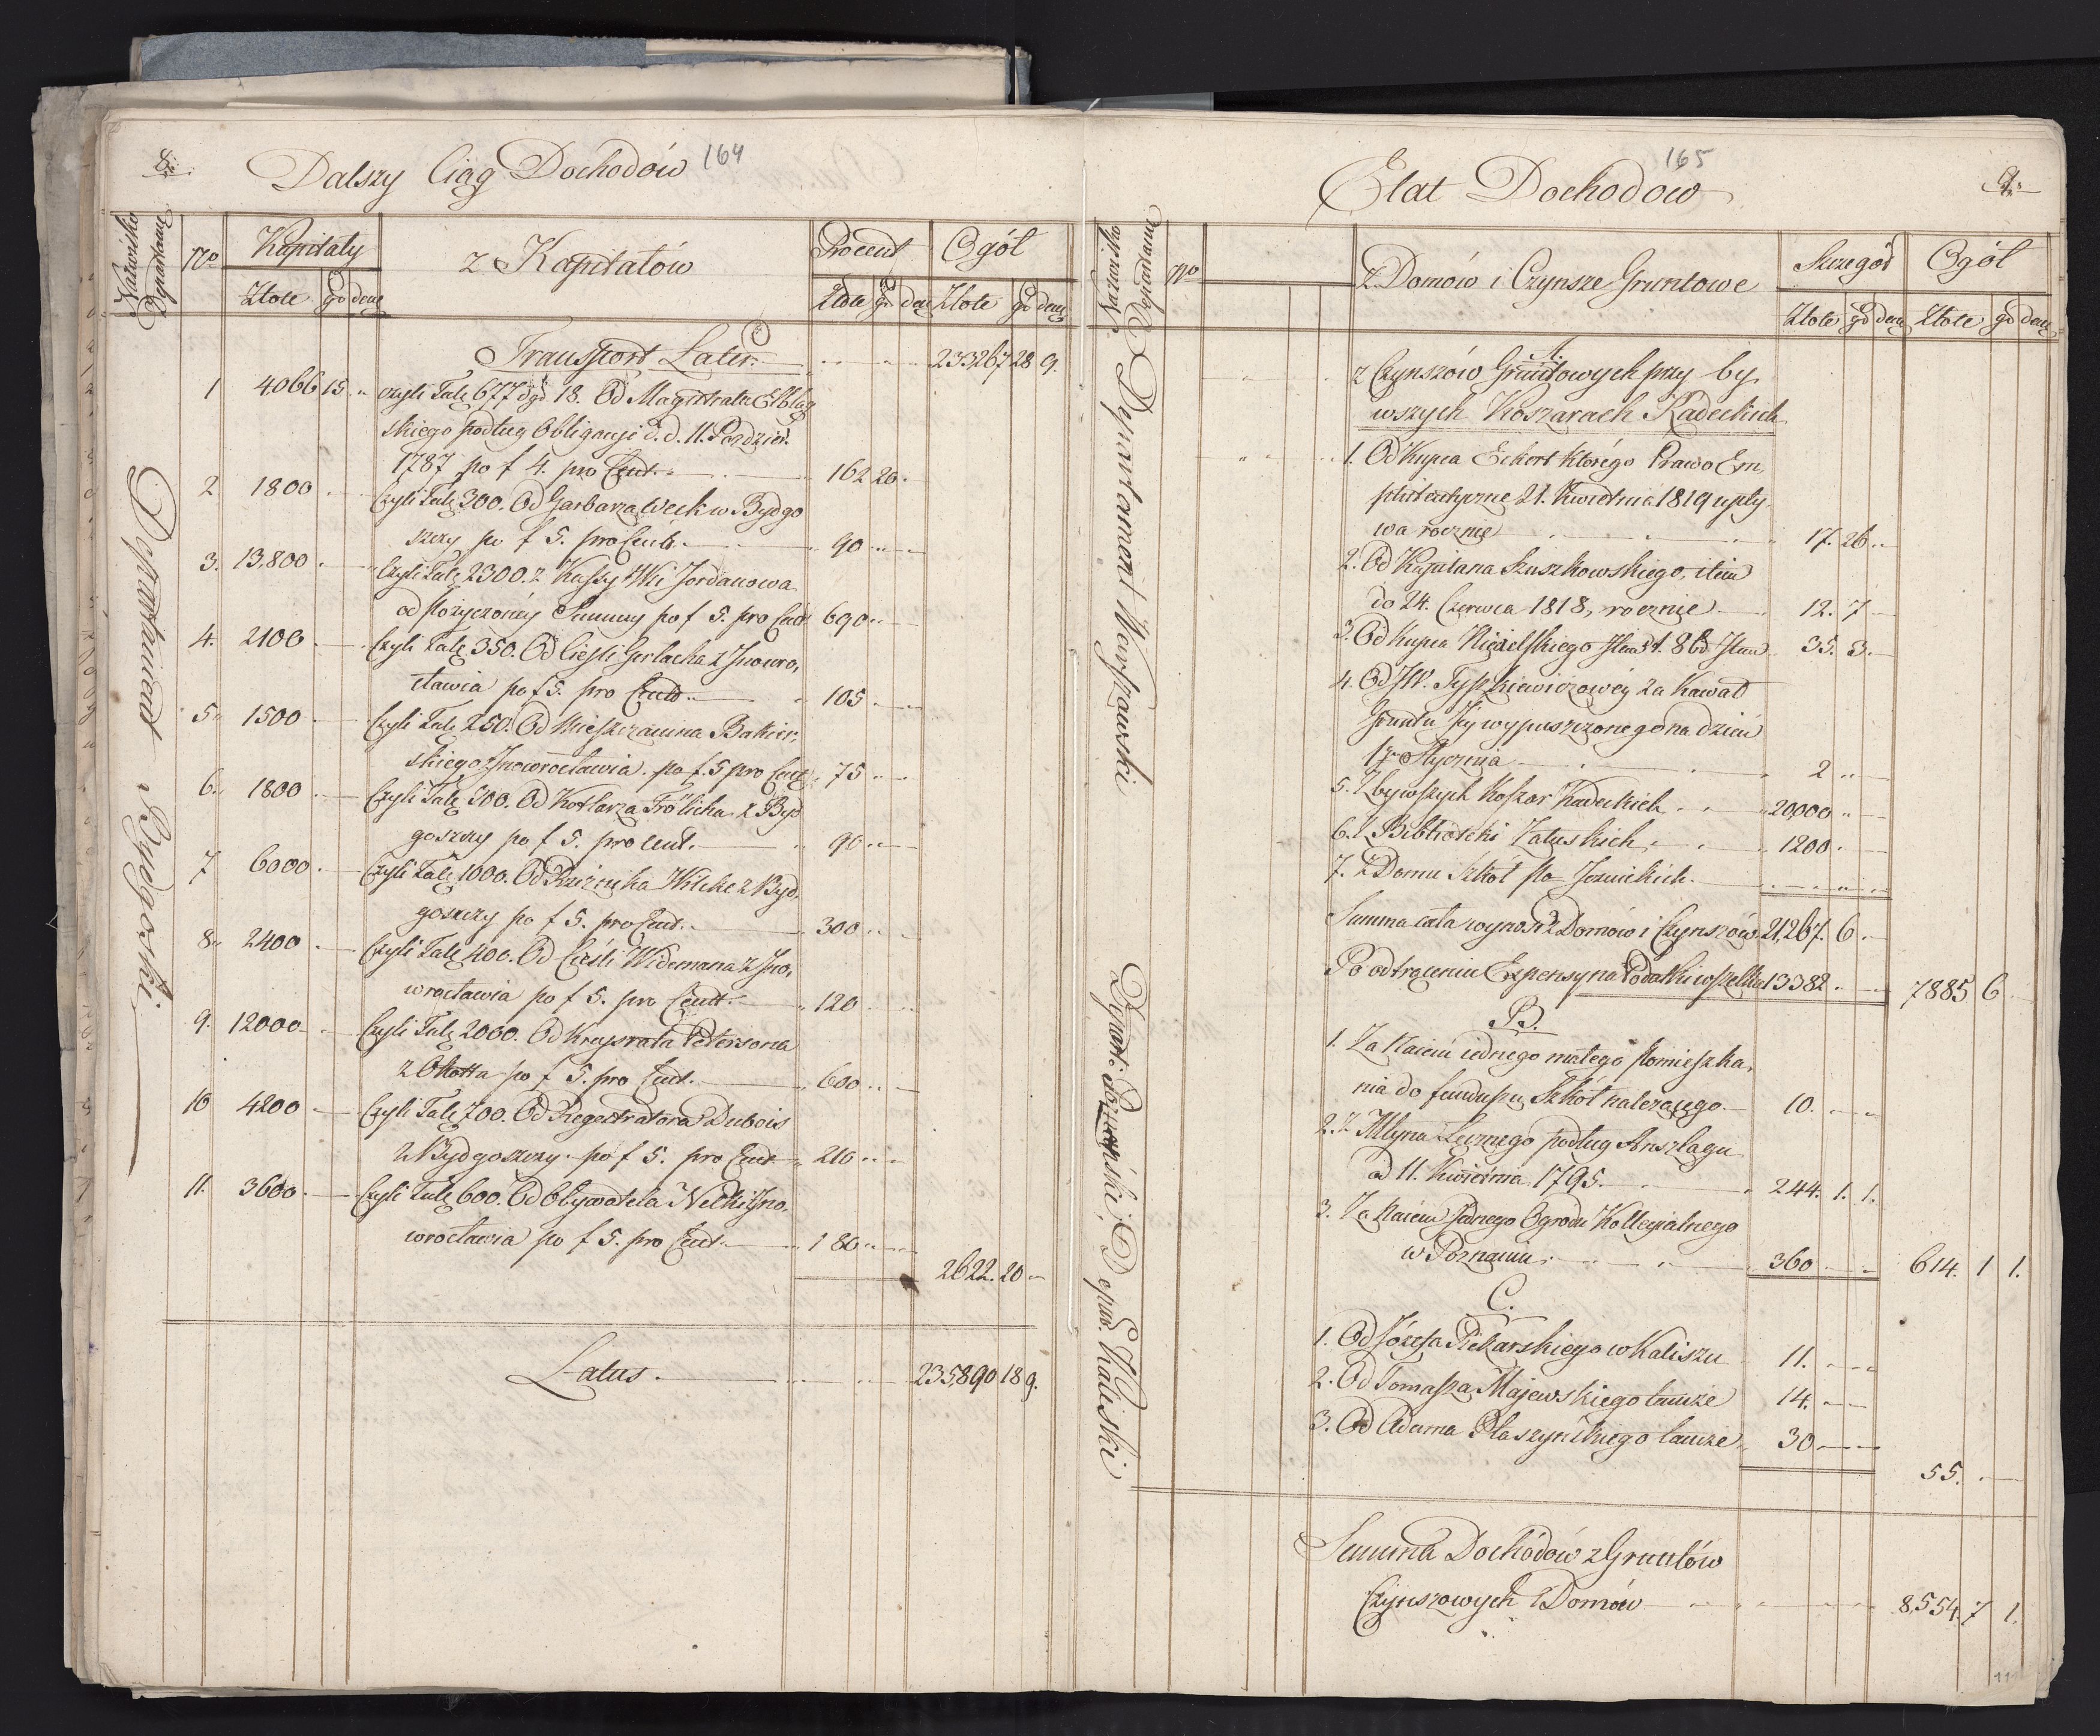 8.
Dalszy Ciąg Dochodów 164
Nazwisko Departam
Nro Kapitały z Kapitałów Procent Ogół
Złote gr den Złote gr den Złote gr den
Transport Later. 233267 28 9.
1 4066 15 czyli Tal. 677 dgr 18. Od Magistratu Elbląg
skiego podług Obligacyi d. d. 11. Paździer.
1787 po f 4. pro Cent. 162 20.
2 1800 Czyli Tal. 300. Od Garbarza Weck w Bydgo
szczy po f 5. pro Cent. 90
3. 13.800 Czyli Tal. 2300. z Kassy Wsi Jordanowa
od pożyczonéy Summy po f 5. pro Cent 690
4. 2100 Czyli Tal. 350. Od Cieśli Gerlacha z Inowro,
cławia po f 5. pro Cent. 105
5. 1500 Czyli Tal. 250. Od Mieszczanina Bakier,
skiego z Inowrocławia. po f. 5 pro Cent 75
6. 1800 Czyli Tal. 300. Od Kotlarza Frölicha z Byd
goszczy po f 5. pro Cent. 90
7 6000 Czyli Tal. 1000. Od Rzeźnika Wilcke z Byd,
goszczy po f 5. pro Cent. 300
8. 2400 Czyli Tal. 400. Od Cieśli Widemana z Ino,
wrocławia po f 5. pro Cent. 120
9. 12000 Czyli Tal. 2000. Od Kraysrata Petersona
z Okotta po f 5. pro Cent. 600
10 4200 Czyli Tal. 700. Od Regestratora Dubois
z Bydgoszczy. po f 5. pro Cent 210
11. 3600 Czyli Tal. 600. Od Obywatela Nelki z Ino,
wrocławia po f 5. pro Cent. 180
2622. 20
Latus. 235,890 18 9.
Departament Bydgoski
165
Etat Dochodow 9.
Nazwisko Departam
Nro z Domów i Czynsze Gruntowe Szczegół Ogół
Złote gr den Złote gr den
A.
z Czynszów Gruntowych przy by,
wszych Koszarach Kadeckich
1. Od Kupca Eckert którego Prawo Em,
phiteutyczne 21. Kwietnia 1819 upły,
wa rocznie 17. 26
2. Od Kajetana Szuszkowskiego, item
do 24. Czerwca 1818, rocznie 12. 7
3. Od Kupca Nizielskiego 35. 3.
4. Od JW. Tyszkiewiczowéy za kawał
Gruntu Jéy wypuszczonego na dzień
1go Stycznia 2
5. Z bywszych Koszar Kadeckich 20,000
6. Z Biblioteki Załuskich 1200
7. Z Domu Szkół po Jezuickich.
Summa cała wynosi z Domów i Czynszów 21,267. 6
Po odtrąceniu Expensy na Podatki wszelkie 13382 7885 6
B.
1. Za Najem iednego małego pomieszka,
nia do funduszu Szkół należącego. 10.
2. Z Młyna Łęcznego podług Anszlagu
od 11. Kwietnia 1795. 244. 1. 1.
3. Za Najem Jednego Ogrodu Kollegialnego
w Poznaniu. 360 614. 1 1.
C.
1. Od Józefa Piekarskiego w Kaliszu 11.
2. Od Tomasza Majewskiego tamże 14.
3. Od Adama Płaszyńskiego tamże 30
55.
Summa Dochodów z Gruntów
Czynszowych i Domów 8,554 7 1.
Departament Warszawski
Depart: Poznański, i Depar. Kaliski